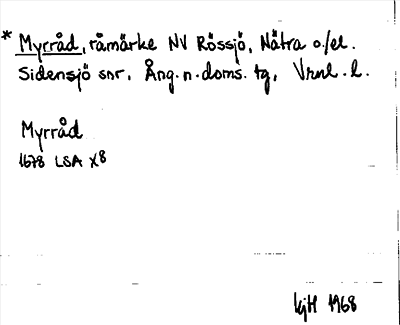 * Myrråd, råmärke NV Rössjö, Nätra o./el.
Sidensjö snr, Ång. n. doms. tg, Vrnl. l.
Myrråd
1678 LSA X8
KjH 1968